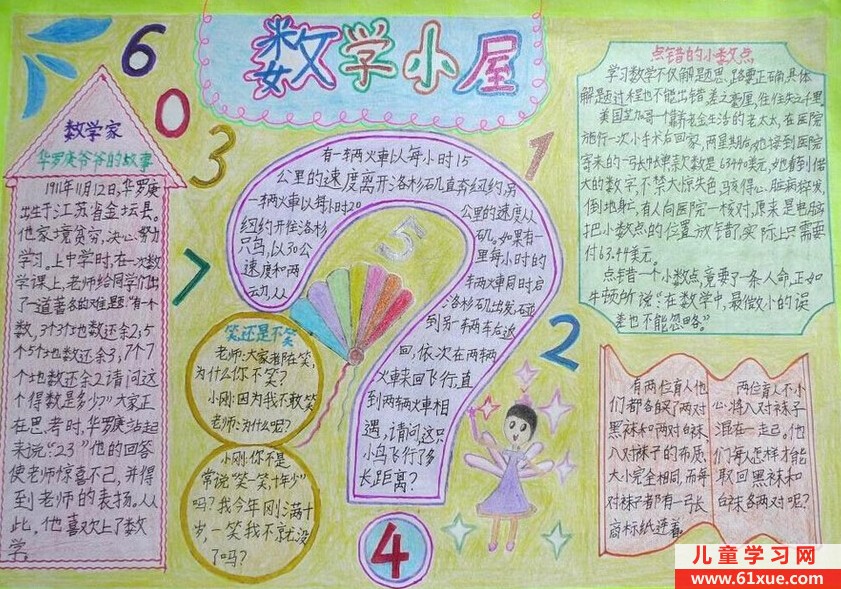 数学小屋
6
0
3
7
1
5
2
4
数学家
华罗庚爷爷的故事
1911年11月12日,华罗庚
出生于江苏省金坛县。
他家境贫穷,决心努力
学习。上中学时,在一次数
学课上,老师给同学们出
了一道著名的难题“有个
数,3个3个地数还余2,5
个5个地数还余3,7个7
个地数还余2,请问这
个得数是多少?”大家正
在思考时,华罗庚站起
来说:“23”他的回答
使老师惊喜不已,并得
到老师的表扬。从
此,他喜欢上了数
学。
有一辆火車以每小时15
公里的速度离开洛杉矶直奔纽约,另
一辆火車以每小时20
公里的速度从
纽约开往洛杉
矶。如果有一
只鸟,以30公
里每小时的
速度和两
辆火車同时启
动,从
洛杉矶出发,碰
到另一辆车后返
回,依次在两辆
火車来回飞行,直
到两辆火車相
遇,请问,这只
小鸟飞行了多
长距离?
笑还是不笑
老师:大家都在笑,
为什么你不笑?
小刚:因为我不敢笑
老师:为什么呢?
小刚:你不是
常说“笑一笑十年少”
吗?我今年刚满十
岁,一笑我不就没
了吗?
点错的小数点
学习数学不仅解题思路要正确,具体
解题过程也不能出错,差之毫厘,往往失之千里.
美国芝加哥一个靠养老金生活的老太太,在医院
施行一次小手术后回家,两星期后,她接到医院
寄来的一张帐单,款数是63440美元,她看到偌
大的数字,不禁大惊失色,骇得心脏病猝发,
倒地身亡,有人向医院一核对,原来是电脑
把小数点的位置放错了,实际上只需要
付63.44美元。
点错一个小数点,竟要了一条人命,正如
牛顿所说:“在数学中,最微小的误
差也不能忽略。”
有两位盲人他
们都各自买了两对
黑袜和两对白袜
八对袜子的布质、
大小完全相同,而每
对袜子都有一张
商标纸连着
两位盲人不小
心将八对袜子
混在一起。他
们每人怎样才能
取回黑袜和
白袜各两对呢?
儿童学习网
www.61xue.com